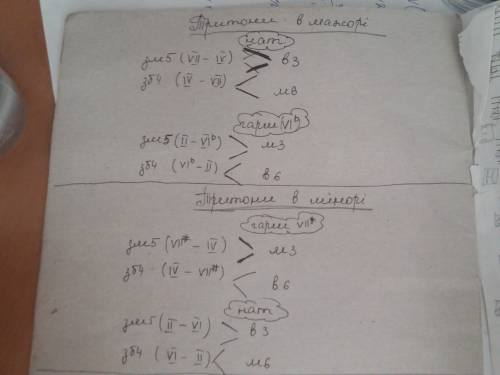 Тритони в мажорі
нат
зм5 (VII - IV) > в3
зб4 (IV - VII) < м6
гарм VIb
зм5 (II - VIb) > м3
зб4 (VIb - II) < в6
Тритони в мінорі
гарм VII#
зм5 (VII# - IV) > м3
зб4 (IV - VII#) < в6
нат
зм5 (II - VI) > в3
зб4 (VI - II) < м6